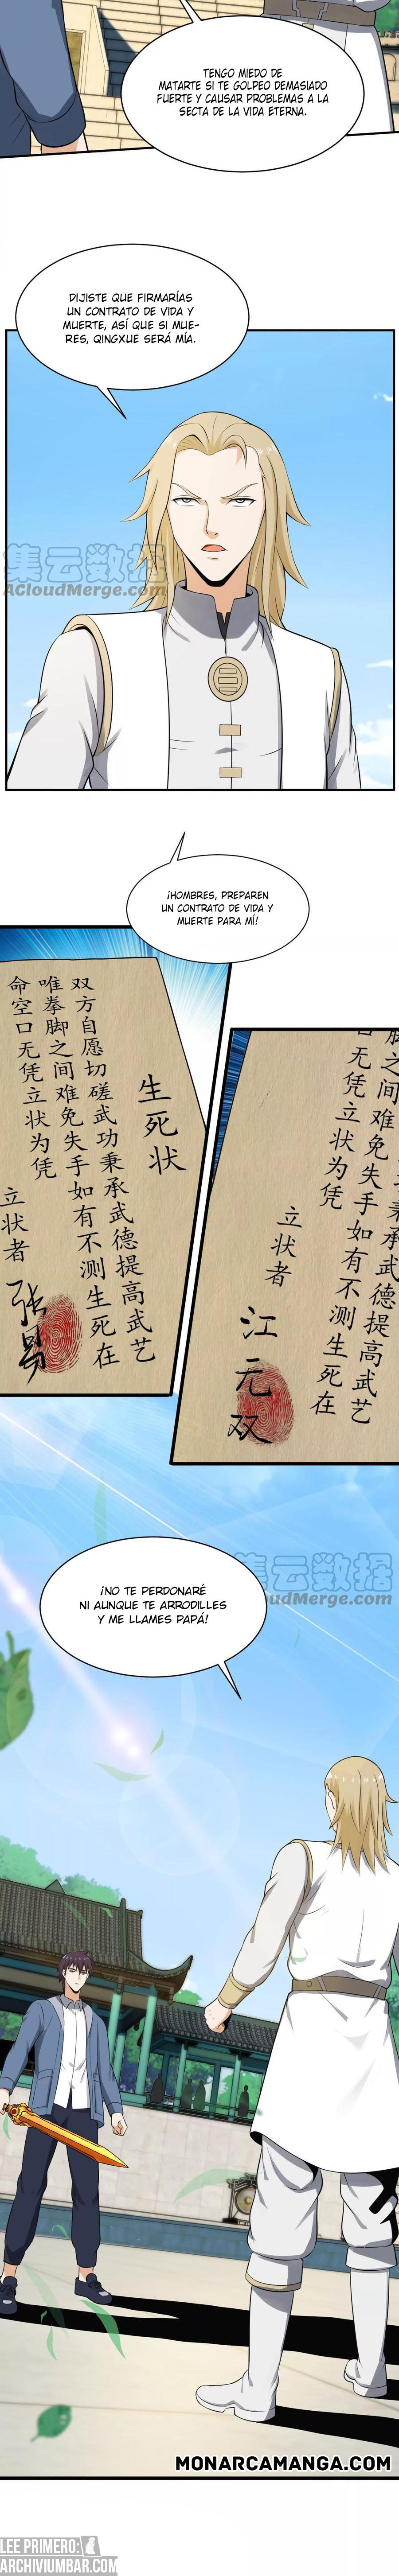 TENGO MIEDO DE
MATARTE SI TE GOLPEO DEMASIADO
FUERTE Y CAUSAR PROBLEMAS A LA
SECTA DE LA VIDA ETERNA.
DIJISTE QUE FIRMARÍAS
UN CONTRATO DE VIDA Y
MUERTE, ASÍ QUE SI MUE-
RES, QINGXUE SERÁ MÍA.
集云数据
ACloudMerge.com
¡HOMBRES, PREPAREN
UN CONTRATO DE VIDA Y
MUERTE PARA MÍ!
生死状
双方自愿切磋武功秉承武德提高武艺
唯拳脚之间难免失手如有不测生死在
命空口无凭立状为凭
立状者
张昺
秉承武德提高武艺
脚之间难免失手如有不测生死在
无凭立状为凭
立状者
江元双
集云数据
ACloudMerge.com
¡NO TE PERDONARÉ
NI AUNQUE TE ARRODILLES
Y ME LLAMES PAPÁ!
MONARCAMANGA.COM
LEE PRIMERO:
ARCHIVIUMBAR.COM